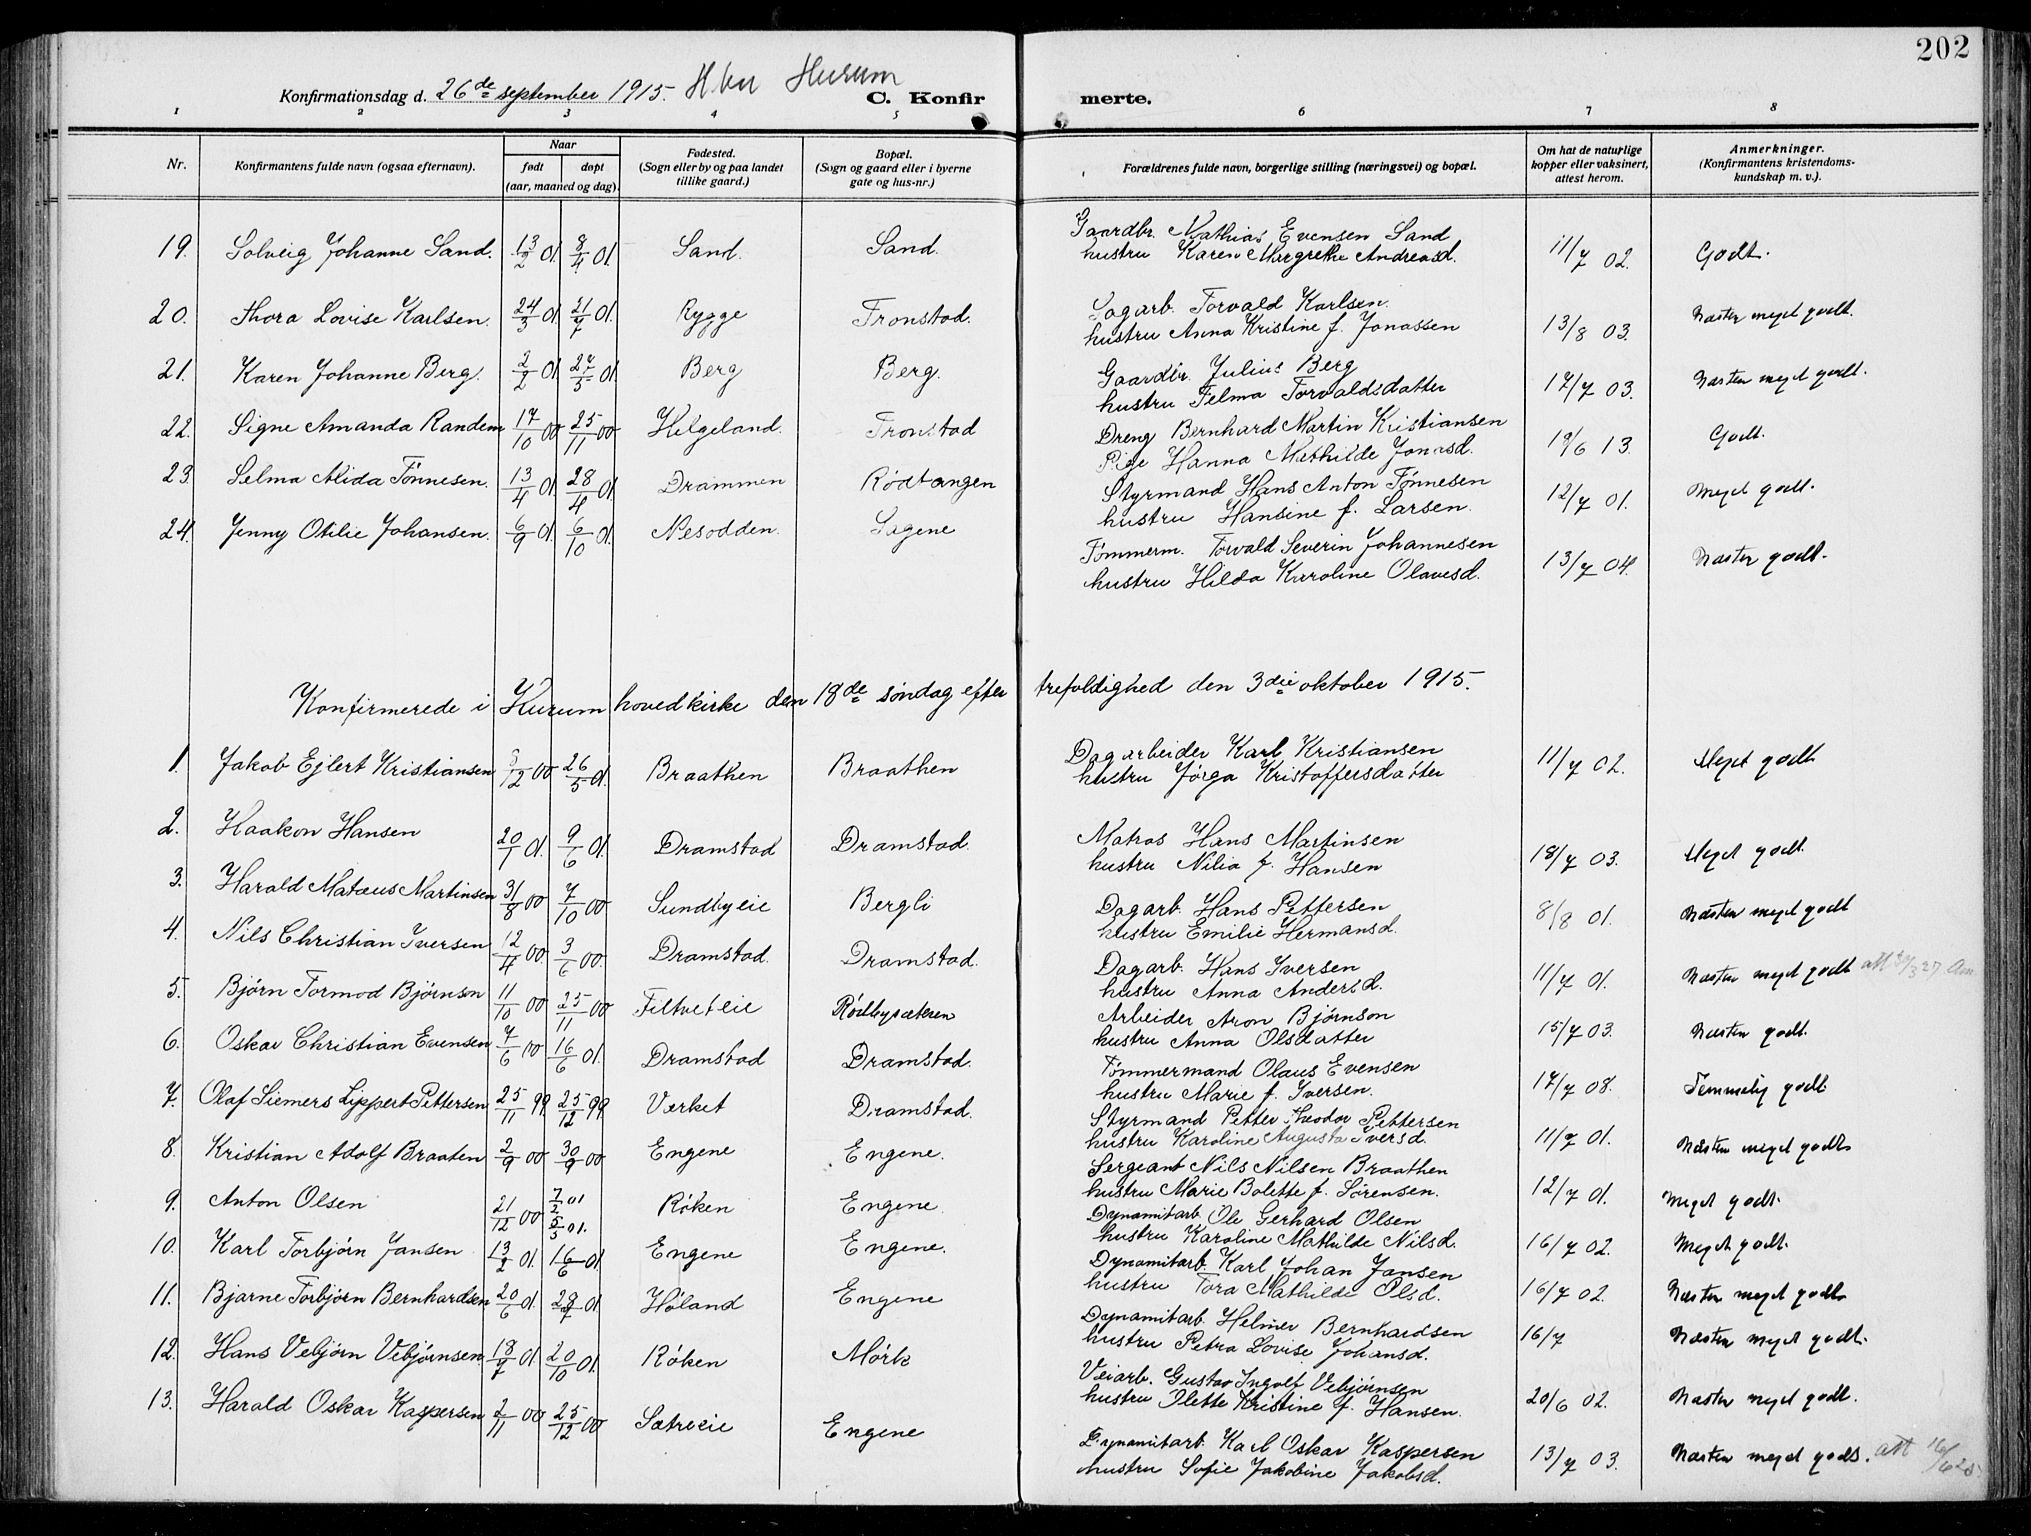 202
Konfirmationsdag d. 26de september 1915. Hurum
C. Konfir merte.
1 2 3 4 5 6 7 8
Nr. Konfirmantens fulde navn (ogsaa efternavn). Naar født døpt (aar, maaned og dag). Fødested. (Sogn eller by og paa landet tillike gaard.) Bopæl. (Sogn og gaard eller i byerne gate og hus-nr.) Forældrenes fulde navn, borgerlige stilling (næringsvei) og bopæl. Om hat de naturlige kopper eller vaksinert, attest herom. Anmerkninger. (Konfirmantens kristendoms-kundskap m. v.).
19. Solveig Johanne Sand. 13/2 01. 8/4 01. Sand. Sand. Gaardbr. Mathias Evensen Sand
hustru Karen Margrethe Andreasd. 11/7 02. Godt.
20. Thora Lovise Karlsen. 24/3 01. 21/7 01. Rygge Tronstad. Sagarb. Torvald Karlsen.
hustru Anna Kristine f. Jonassen 13/8 03. Næsten meget godt.
21. Karen Johanne Berg. 2/2 01. 27/5 01. Berg Berg. Gaardbr. Julius Berg
hustru Telma Torvaldsdatter 17/7 03. Næsten meget godt.
22. Signe Amanda Randem 17/10 00 25/11 00 Helgeland. Tronstad Dreng Bernhard Martin Kristiansen
Pige Hanna Mathilde Jonasd. 19/6 13. Godt.
23. Selma Alida Tönnesen. 13/4 01. 28/4 01. Drammen Rödtangen Styrmand Hans Anton Tönnesen
hustru Hansine f. Larsen. 12/7 01. Meget godt.
24. Jenny Otilie Johansen. 6/9 01. 6/10 01. Nesodden. Sagene Tömmerm. Torvald Severin Johannesen
hustru Hilda Karoline Olavesd. 13/7 04. Næsten godt.
Konfirmerede i Hurum hovedkirke den 18de søndag efter trefoldighed den 3die oktober 1915.
1. Jakob Ejlert Kristiansen /12 00 26/5 01. Braathen Braathen Dagarbeider Karl Kristiansen
hustru Jörga Kristoffersdatter 11/7 02. Meget godt
2. Haakon Hansen 20/1 01. 9/6 01. Dramstad Dramstad. Matros Hans Martinsen
hustru Nilia f. Hansen 18/7 03. Meget godt.
3. Harald Matæus Martinsen 31/8 00 7/10 00 Sundbyeie Bergli Dagarb. Hans Pettersen
hustru Emilie Hermansd. 8/8 01. Næsten meget godt
4. Nils Christian Iversen 12/4 00. 3/6 00. Dramstad. Dramstad. Dagarb. Hans Iversen
hustru Anna Andersd. 11/7 01. Næsten meget godt att /3 27
5. Björn Tormod Björnson 11/10 00 25/11 00 Filtveteie Rödbysæteren Arbeider Aron Björnson
hustru Anna Olsdatter 15/7 03. Næsten godt.
6. Oskar Christian Evensen 7/6 00 16/6 01. Dramstad Dramstad. Tömmermand Olaus Evensen
hustru Marie f. Iversen. 17/7 08. Temmelig godt
7. Olaf Siemers Lippert Pettersen 25/11 99. 25/12 99. Verket Dramstad. Styrmand Petter Theodor Pettersen
hustru Karoline Augusta Iversd. 11/7 01. Næsten meget godt
8. Kristian Adolf Braaten 2/9 00 30/9 00 Engene Engene. Sergeant Nils Nilsen Braathen
hustru Marie Bolette f. Sörensen. 12/7 01. Meget godt.
9. Anton Olsen 21/12 00 7/2 01 5/5 01. Röken Engene. Dynamitarb. Ole Gerhard Olsen
hustru Karoline Mathilde Nilsd. 16/7 02. Meget godt.
10. Karl Torbjörn Jansen 13/2 01. 16/6 01. Engene Engene. Dynamitarb. Karl Johan Jansen
hustru Tora Mathilde Olsd. 16/7 02. Næsten meget godt
11. Bjarne Torbjörn Bernhardsen 20/6 01. 28/7 01. Höland Engene Dynamitarb. Helmer Bernhardsen
hustru Petra Lovise Johansd. 16/7 Næsten meget godt.
12. Hans Vebjörn Vebjörnsen 18/7 01. 20/10 01. Röken Mörk Veiarb. Gustav Ingolf Vebjörnsen
hustru Olette Kristine f. Hansen. 20/6 02. Næsten meget godt.
13. Harald Oskar Kaspersen 2/11 00 25/12 00 Sætreeie Engene Dynamitarb. Karl Oskar Kaspersen
hustru Sofie Jakobine Jakobsd. 13/7 03. Næsten meget godt. att 16/6 20